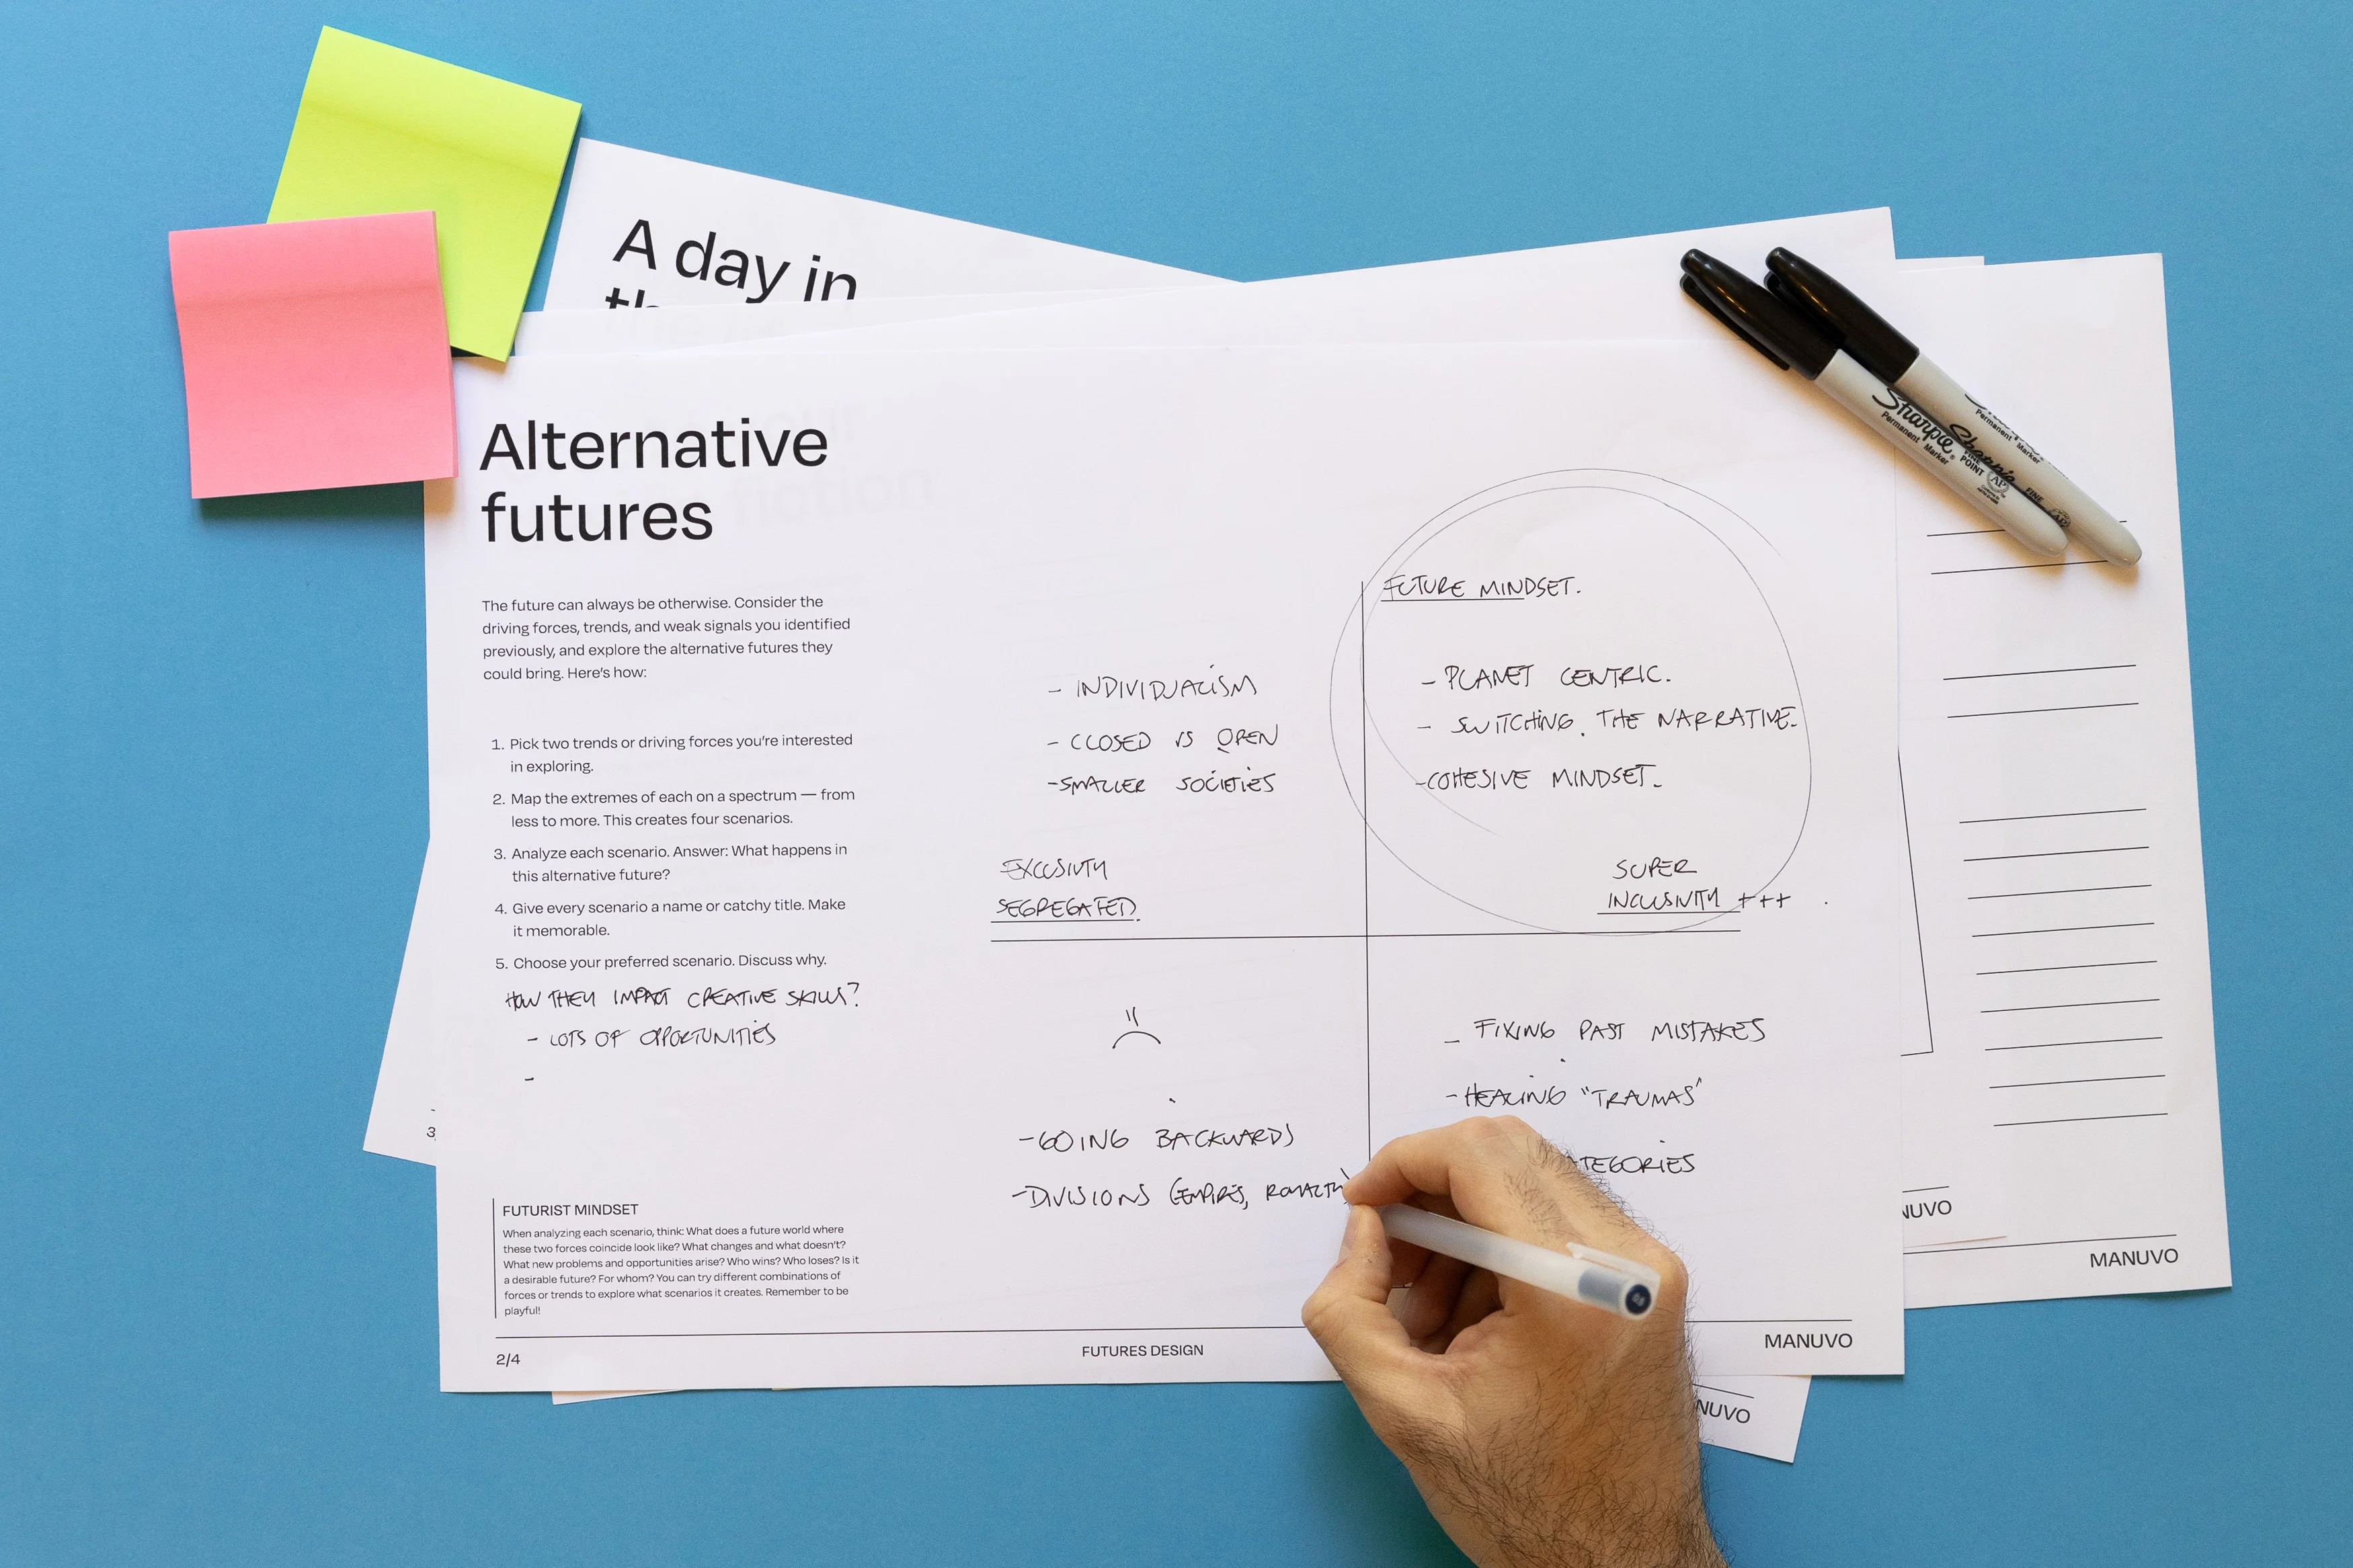 A day in
Alternative
futures
The future can always be otherwise. Consider the
driving forces, trends, and weak signals you identified
previously, and explore the alternative futures they
could bring. Here's how:
1. Pick two trends or driving forces you're interested
in exploring.
2. Map the extremes of each on a spectrum — from
less to more. This creates four scenarios.
3. Analyze each scenario. Answer: What happens in
this alternative future?
4. Give every scenario a name or catchy title. Make
it memorable.
5. Choose your preferred scenario. Discuss why.
HOW THEY IMPACT CREATIVE SKILLS?
- LOTS OF OPPORTUNITIES
-
FUTURIST MINDSET
When analyzing each scenario, think: What does a future world where
these two forces coincide look like? What changes and what doesn't?
What new problems and opportunities arise? Who wins? Who loses? Is it
a desirable future? For whom? You can try different combinations of
forces or trends to explore what scenarios it creates. Remember to be
playful!
- INDIVIDUALISM
- CLOSED VS OPEN
- SMALLER SOCIETIES
EXCLSIVITY
SEGREGATED.
FUTURE MINDSET.
- PLANET CENTRIC.
- SWITCHING THE NARRATIVE.
- COHESIVE MINDSET.
SUPER
INCLUSIVITY +++
- GOING BACKWARDS
- DIVISIONS (EMPIRES, ROYALTY)
- FIXING PAST MISTAKES
- HEALING "TRAUMAS"
ATEGORIES
2/4
FUTURES DESIGN
MANUVO
Sharpie
Permanent Marker
FINE POINT
AP
Sharpie
Permanent Marker
FINE
NUVO
MANUVO
NUVO
3
0.5